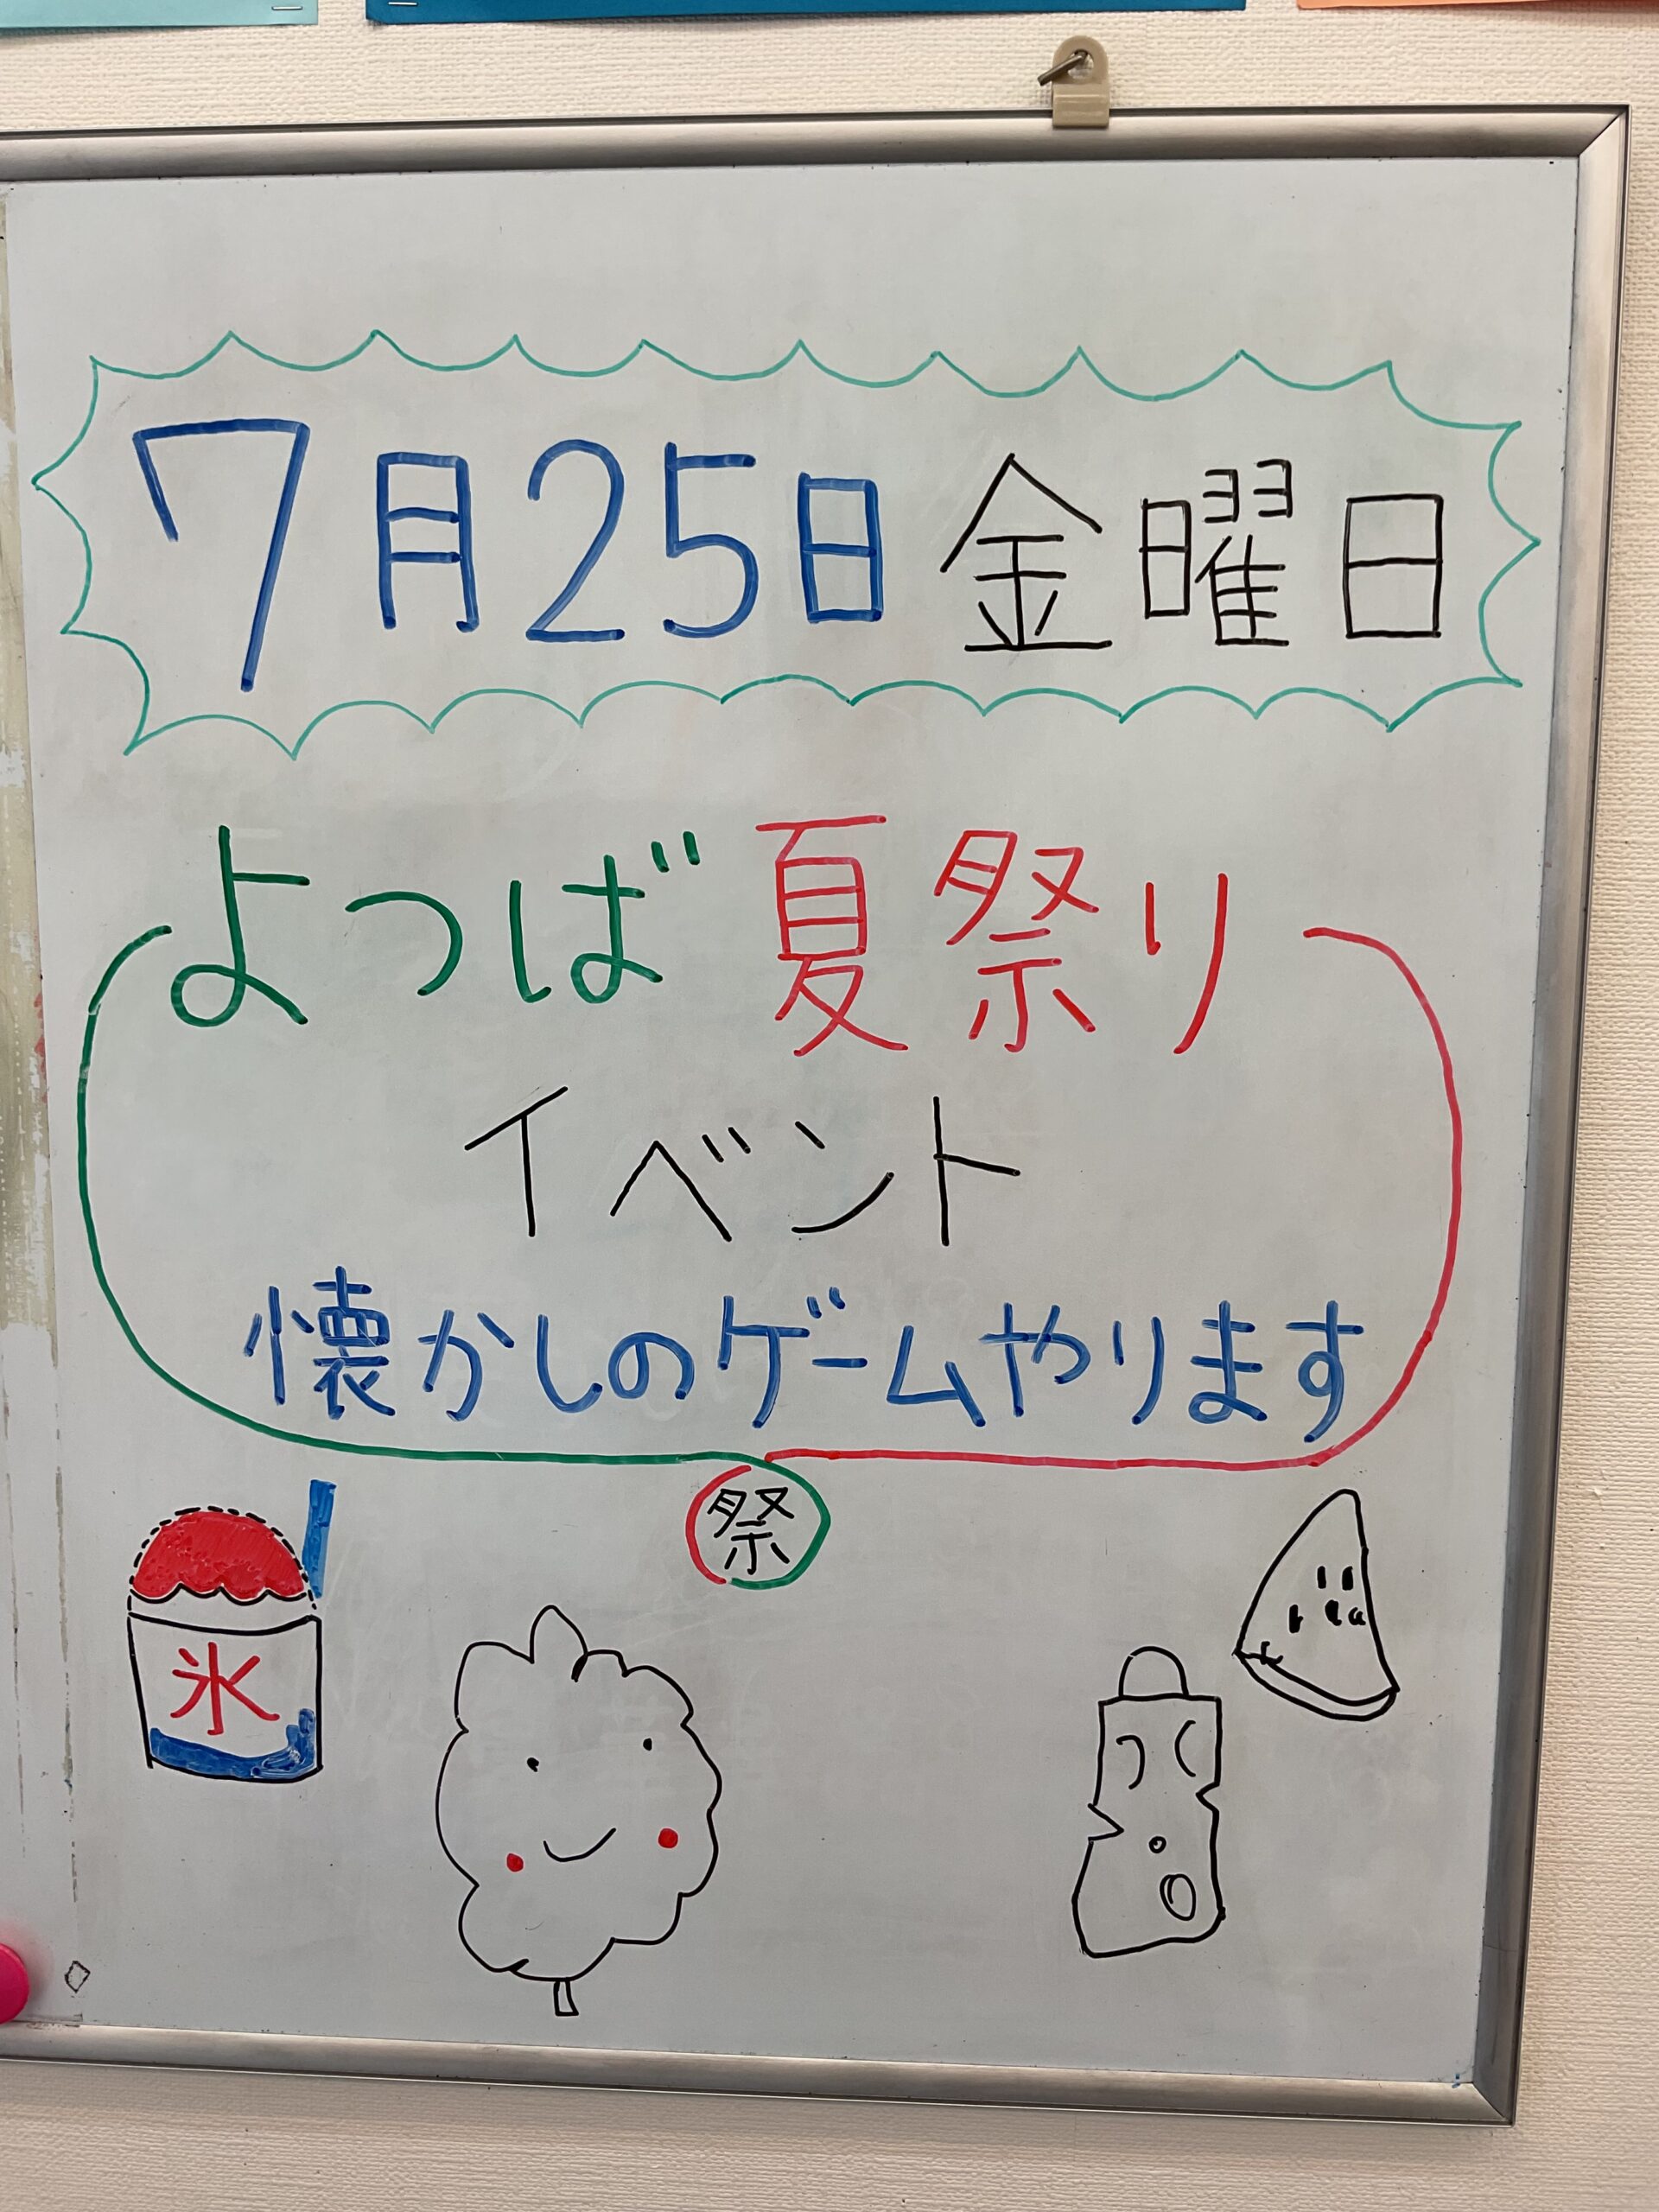 7月25日 金曜日
よつば夏祭り
イベント
懐かしのゲームやります
祭
氷